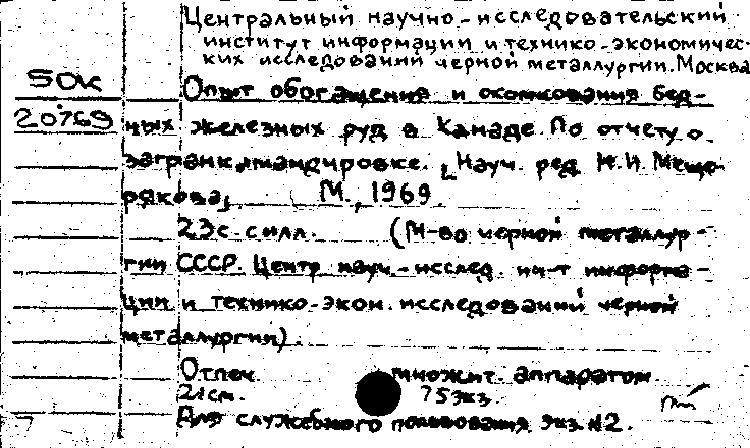 Центральный научно-исследовательский
институт информации и технико-экономичес-
ких исследований черной металлургии. Москва
50к Опыт обогащения и окомкования бед-
20769 ных железных руд в Канаде. По отчету о
загранкомандировке. [Науч. ред. Н.И. Мещо-
рякова]. М., 1969.
23с. с илл. (М-во черной металлур-
гии СССР. Центр науч.-исслед. ин-т информа-
ции и технико-экон. исследований черной
металлургии).
Отпеч. множит. аппаратом.
21см. 75 экз.
Для служебного пользования. Экз. №2.